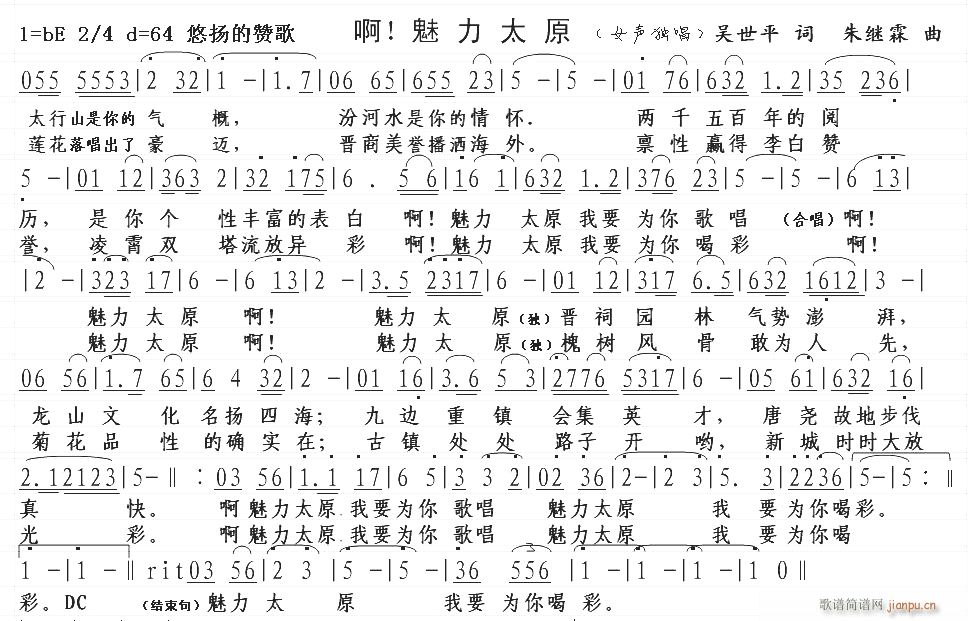 1=bE 2/4 d=64 悠扬的赞歌 啊！魅力太原 （女声独唱）吴世平 词 朱继霖 曲
055 5553|2 32|1 -|1.7|06 65|655 23|5 -|5 -|01 76|632 1.2|35 236|
太行山是你的气 概， 汾河水是你的情 怀． 两 千 五百 年的 阅
莲花落唱出了豪 迈， 晋商美誉播洒海 外。 禀 性 赢得 李白 赞
5 -|01 12|363 2|32 175|6 . 56|16 1|632 1.2|376 23|5 -|5 -|6 13|
历， 是 你 个 性丰富的表 白 啊！魅力 太原 我要 为你 歌 唱 （合唱）啊！
誉， 凌霄 双 塔流放异 彩 啊！魅力 太原 我要 为你 喝 彩 啊！
|2 -|323 17|6 -|6 13|2 -|3.5 2317|6 -|01 12|317 6.5|632 1612|3 -|
魅力 太 原 啊！ 魅力 太 原（独）晋 祠 园 林 气势 澎 湃，
魅力 太 原 啊！ 魅力 太 原（独）槐 树 风 骨 敢为 人 先，
06 56|1.7 65|6 4 32|2 -|01 16|3.6 53|2776 5317|6 -|05 61|632 16|
龙 山 文 化 名扬 四 海； 九 边 重 镇 会集 英 才， 唐 尧 故地步伐
菊 花 品 性 的确 实 在； 古 镇 处 处 路子 开 哟， 新 城 时时大放
2.12123|5-‖：03 56|1.1 17|6 5|3 3 2|02 36|2-2|3|5. 3|2236|5-|5：‖
真 快。 啊 魅力太原 我要为你 歌唱 魅力太原 我 要 为你喝彩。
光 彩。 啊 魅力太原 我要为你 歌唱 魅力太原 我 要 为你喝
1 -|1 -‖rit03 56|2 3|5 -|5 -|36 556|1 -|1 -|1 0‖
彩。DC （结束句）魅力 太 原 我要 为你喝 彩.
歌谱简谱网 jianpu.cn